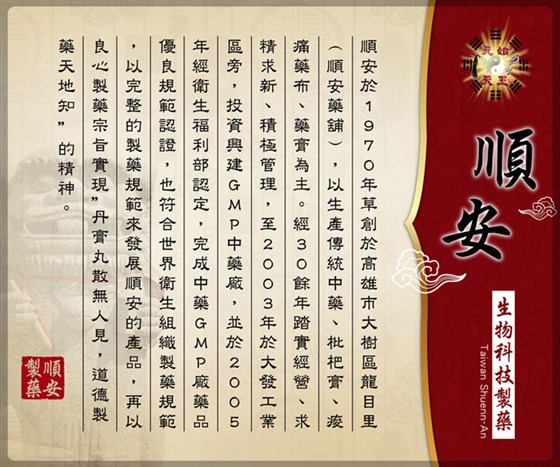 元始
天王
順安
生物科技製藥
Taiwan Shuenn-An
順安於1970年草創於高雄市大樹區龍目里
（順安藥舖），以生產傳統中藥、枇杷膏、痠
痛藥布、藥膏為主。經30餘年踏實經營、求
精求新、積極管理，至2003年於大發工業
區旁，投資興建GMP中藥廠，並於2005
年經衛生福利部認定，完成中藥GMP廠藥品
優良規範認證，也符合世界衛生組織製藥規範
，以完整的製藥規範來發展順安的產品，再以
良心製藥宗旨實現”丹膏丸散無人見，道德製
藥天地知”的精神。
順安
製藥